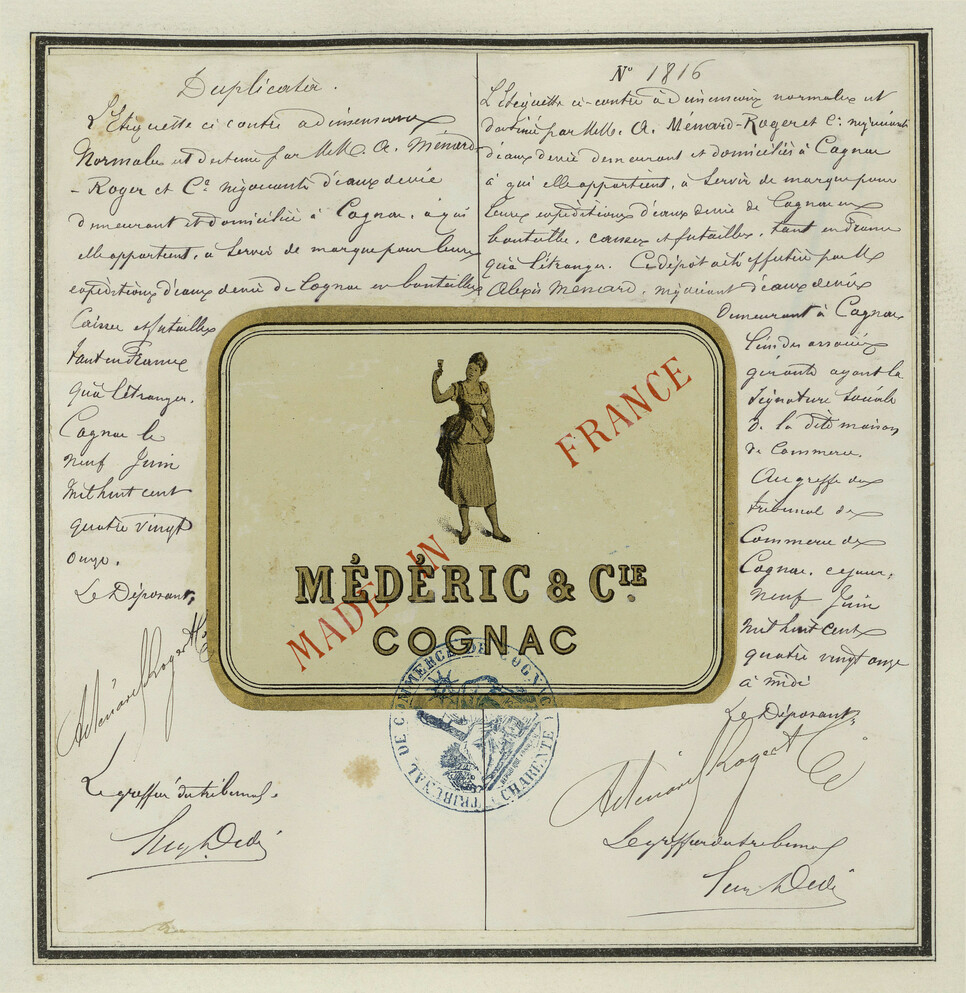 Duplicata.
L'Etiquette ci contre a dimensions
Normales est destinée par M.M. A. Ménard
-Roger et Cie négociants d'eaux de vie
demeurant et domiciliés à Cognac, à qui
elle appartient, à servir de marque pour leurs
expéditions d'eaux de vie de Cognac en bouteilles
Caisses et futailles
tant en France
qu'à l'étranger.
Cognac le
neuf Juin
mil huit cent
quatre vingt
onze.
Le Déposant,
A Ménard Roger & Cie
Le greffier du tribunal.
No 1816
L'Etiquette ci-contre à dimensions normales est
destinée par M.M. A. Ménard-Roger et Cie négociants
d'eaux de vie demeurant et domiciliés à Cognac
à qui elle appartient, à servir de marque pour
leurs expéditions d'eaux de vie de Cognac en
bouteilles, caisses et futailles, tant en France
qu'à l'étranger. Ce dépôt a été effectué par M.
Alexis Ménard, négociant d'eaux de vie
demeurant à Cognac
l'un des associés
gérants ayant la
signature sociale
de la dite maison
de Commerce.
Au greffe du
tribunal de
Commerce de
Cognac, ce jour,
neuf Juin
mil huit cent
quatre vingt onze
à midi
Le Déposant,
A Ménard Roger & Cie
Le greffier du tribunal
FRANCE
MADE IN
MÉDÉRIC & CIE
COGNAC
TRIBUNAL DE COMMERCE DE COGNAC
CHARENTE